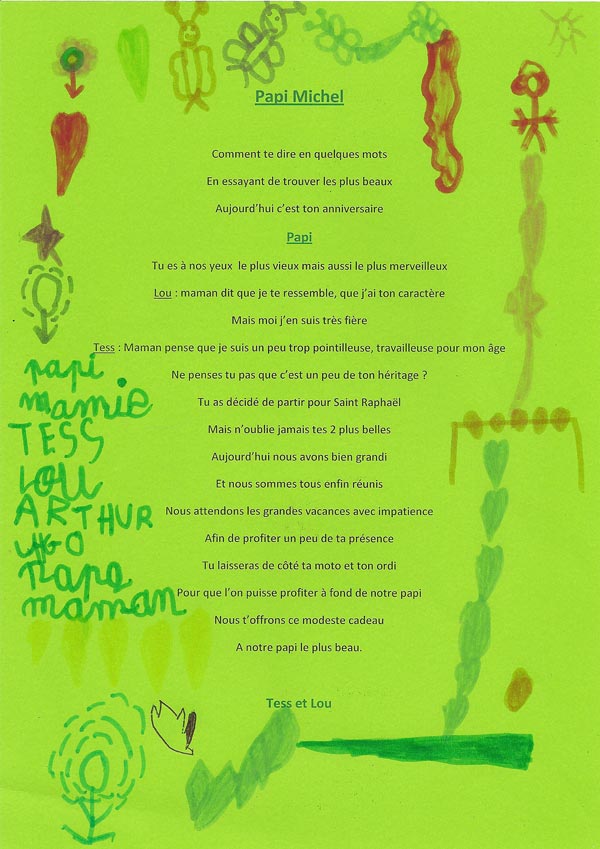 Papi Michel
Comment te dire en quelques mots
En essayant de trouver les plus beaux
Aujourd'hui c'est ton anniversaire
Papi
Tu es à nos yeux le plus vieux mais aussi le plus merveilleux
Lou : maman dit que je te ressemble, que j'ai ton caractère
Mais moi j'en suis très fière
Tess : Maman pense que je suis un peu trop pointilleuse, travailleuse pour mon âge
Ne penses tu pas que c'est un peu de ton héritage ?
Tu as décidé de partir pour Saint Raphaël
Mais n'oublie jamais tes 2 plus belles
Aujourd'hui nous avons bien grandi
Et nous sommes tous enfin réunis
Nous attendons les grandes vacances avec impatience
Afin de profiter un peu de ta présence
Tu laisseras de côté ta moto et ton ordi
Pour que l'on puisse profiter à fond de notre papi
Nous t'offrons ce modeste cadeau
A notre papi le plus beau.
Tess et Lou
papi
mamie
TESS
LOU
ARTHUR
UGO
Papa
maman